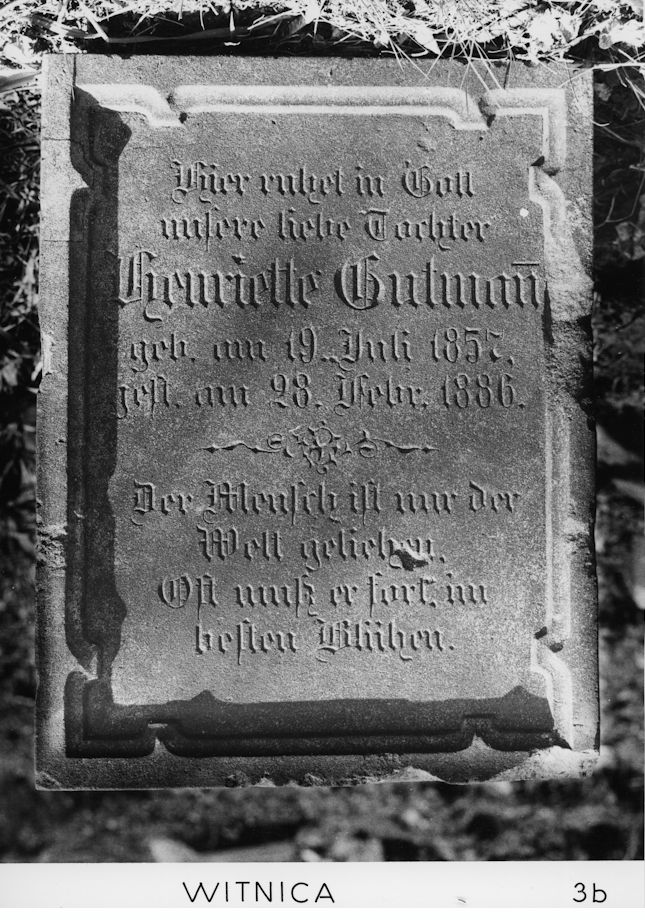 Hier ruhet in Gott
unsere liebe Tochter
Henriette Gutman̅
geb. am 19. Juli 1857,
gest. am 28. Febr. 1886.
Der Mensch ist nur der
Welt geliehen,
Oft muß er fort, im
besten Blühen.
WITNICA 3b